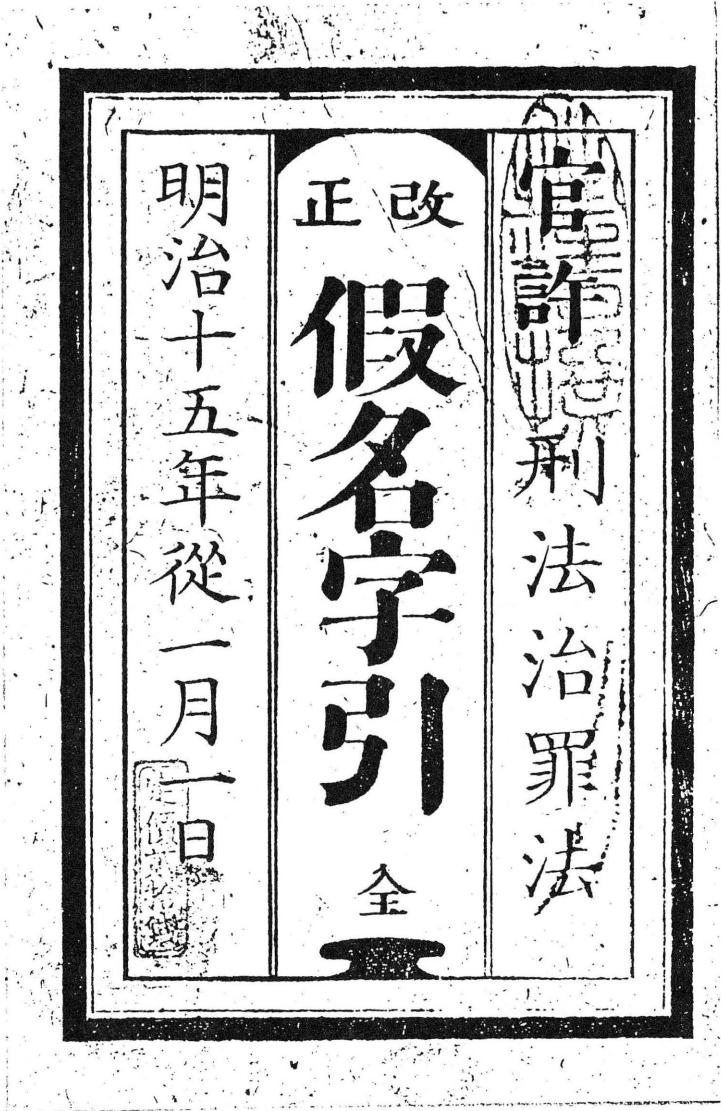 官許刑法治罪法
改正
假名字引
全
明治十五年從一月一日